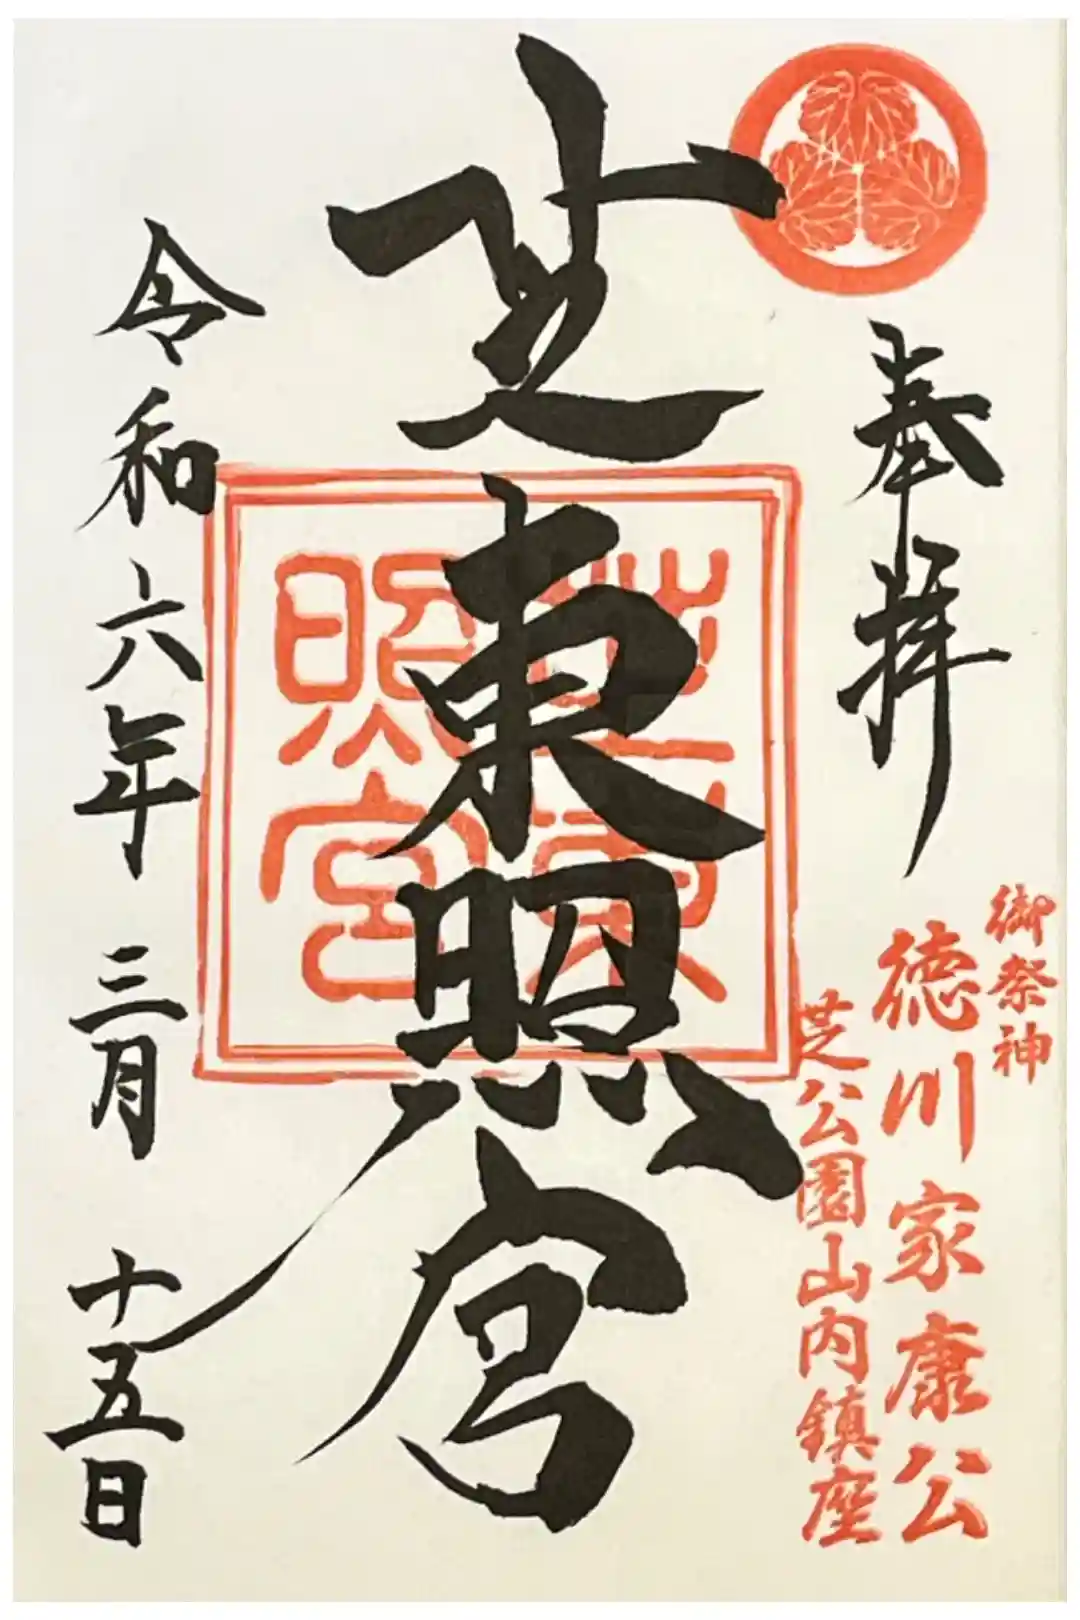 奉拝
御祭神
徳川家康公
芝公園山内鎮座
芝東照宮
芝東
照宮
令和六年 三月 十五日